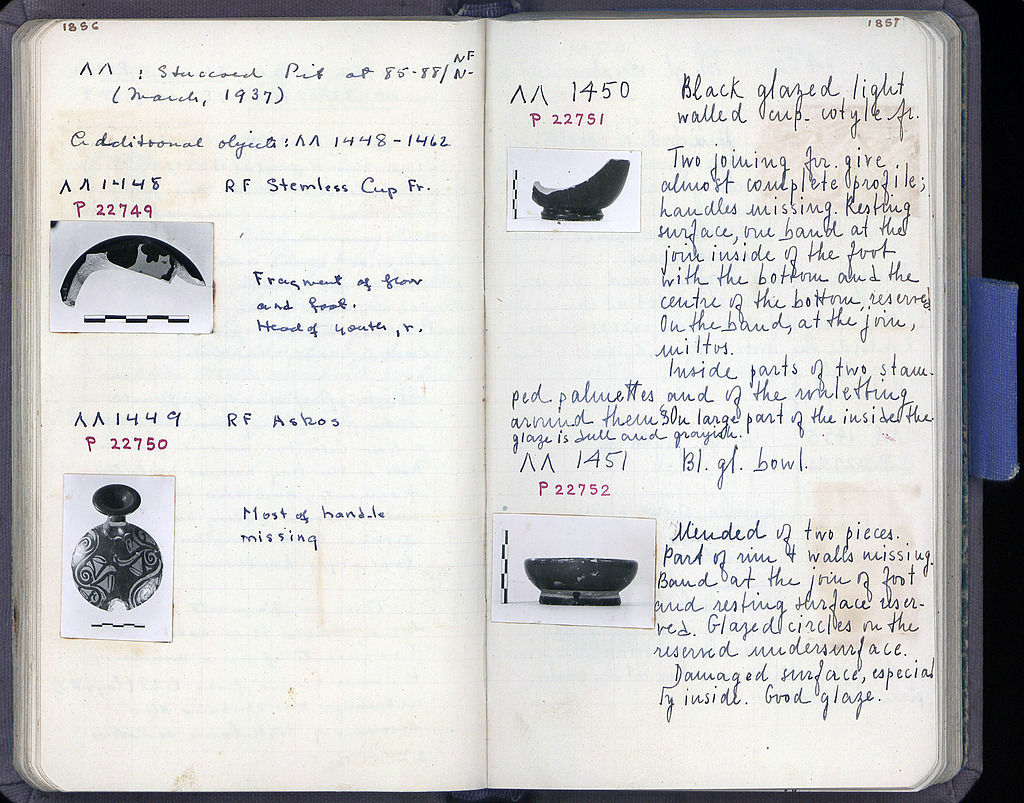 1856
ΛΛ : Stuccoed Pit at 85-88/ΝΣ-
(March, 1937)
Additional objects: ΛΛ 1448-1462
ΛΛ 1448 RF Stemless Cup Fr.
P 22749
Fragment of floor
and foot.
Head of youth, r.
ΛΛ 1449 RF Askos
P 22750
Most of handle
missing
1857
ΛΛ 1450 Black glazed light
P 22751 walled cup-cotyle fr.
Two joining frr. give
almost complete profile;
handles missing. Resting
surface, one band at the
join inside of the foot
with the bottom and the
centre of the bottom, reserved.
On the band, at the join,
miltos.
Inside parts of two stam-
ped palmettes and of the rouletting
around them. On large part of the inside the
glaze is dull and grayish.
ΛΛ 1451 Bl. gl. bowl.
P 22752
Mended of two pieces.
Part of rim + walls missing.
Band at the join of foot
and resting surface reser-
ved. Glazed circles on the
reserved undersurface.
Damaged surface, especial
ly inside. Good glaze.